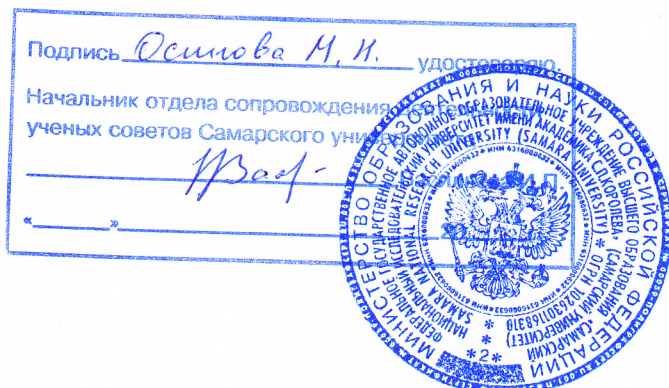 Подпись Осипова М.Н. удостоверяю.
Начальник отдела сопровождения деятельности
ученых советов Самарского университета
« »
МИНИСТЕРСТВО ОБРАЗОВАНИЯ И НАУКИ РОССИЙСКОЙ ФЕДЕРАЦИИ
ФЕДЕРАЛЬНОЕ ГОСУДАРСТВЕННОЕ АВТОНОМНОЕ ОБРАЗОВАТЕЛЬНОЕ УЧРЕЖДЕНИЕ ВЫСШЕГО ОБРАЗОВАНИЯ
НАЦИОНАЛЬНЫЙ ИССЛЕДОВАТЕЛЬСКИЙ УНИВЕРСИТЕТ ИМЕНИ АКАДЕМИКА С.П.КОРОЛЕВА" (САМАРСКИЙ УНИВЕРСИТЕТ)
"САМАРСКИЙ
SAMARA NATIONAL RESEARCH UNIVERSITY (SAMARA UNIVERSITY) * ОГРН 1026301168310 *
* ИНН 6316000632 *
*2*